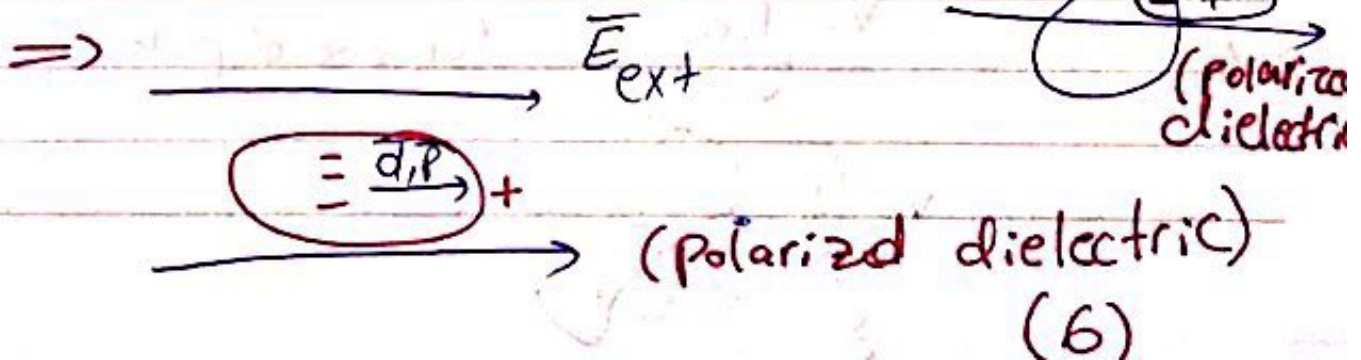 => E̅ext
(polariz
dielectri
d̅,p̅ +
(polarizd dielectric)
(6)